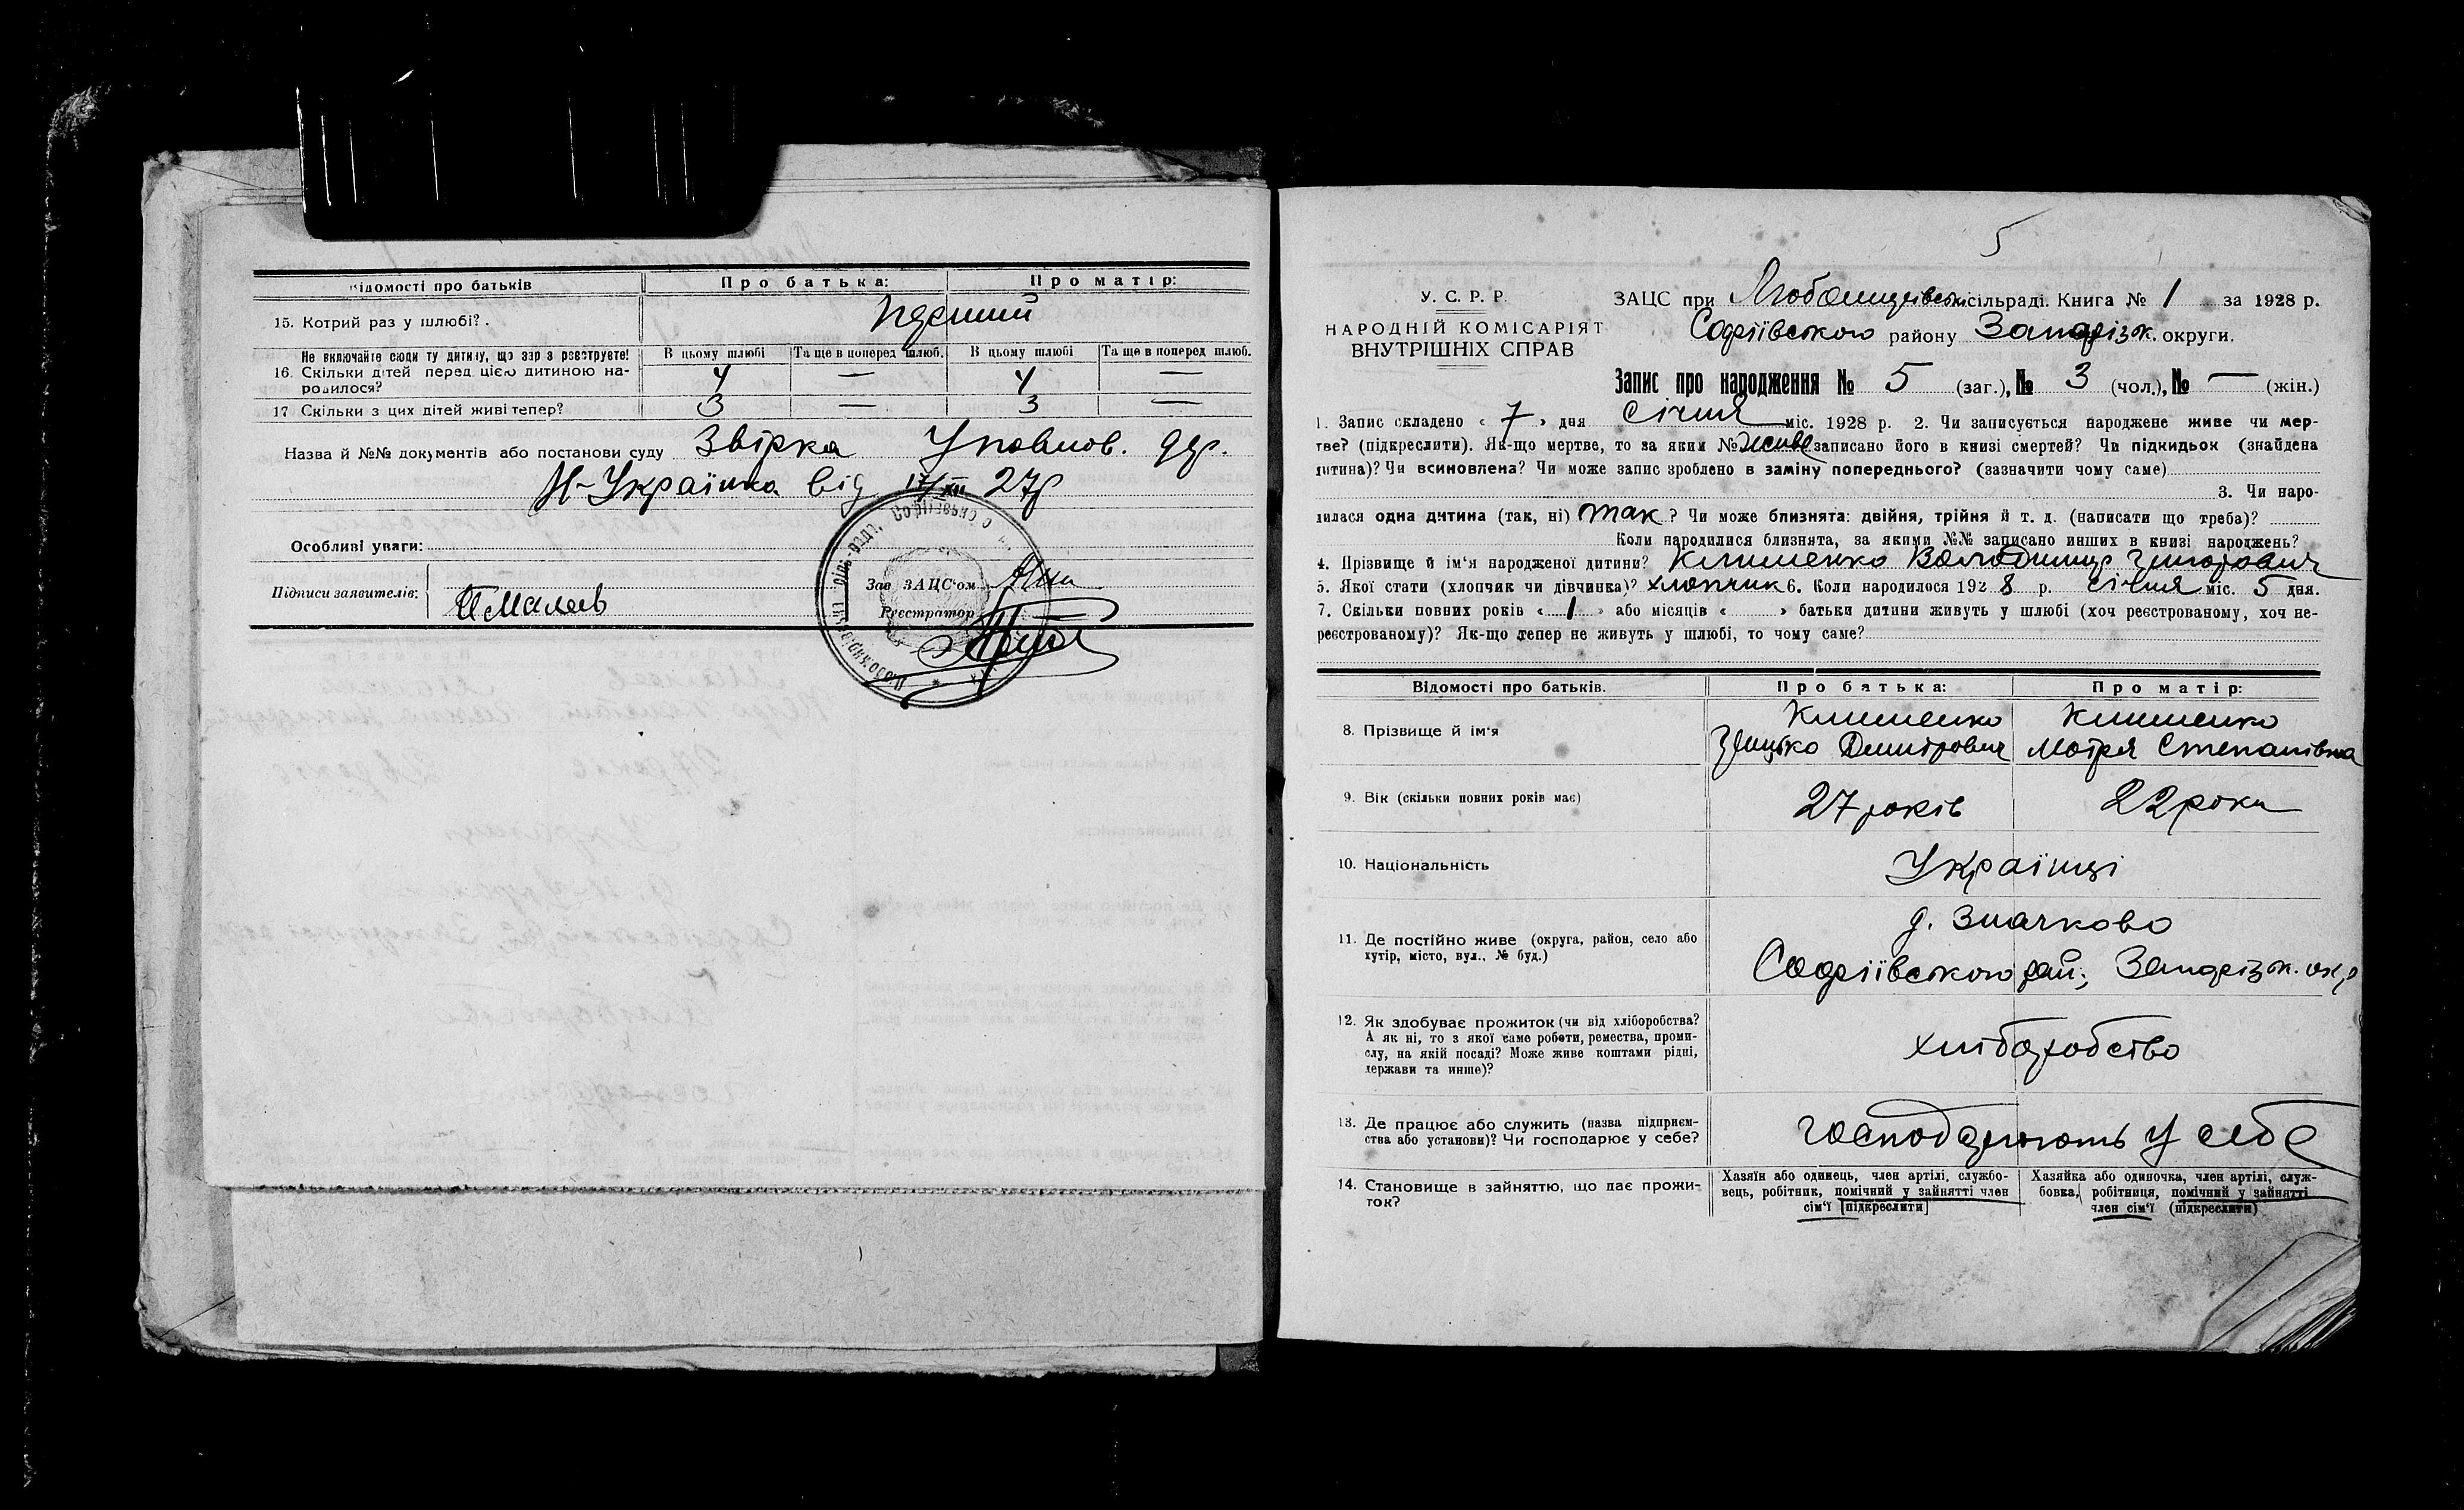 Відомості про батьків
Про батька:
Про матір:
15. Котрий раз у шлюбі?
перший
Не включайте сюди ту дитину, що зараз реєструєте!
В цьому шлюбі
Та ще в поперед. шлюб.
В цьому шлюбі
Та ще в поперед. шлюб.
16. Скільки дітей перед цією дитиною на-
родилося?
4 — 4 —
17 Скільки з цих дітей живі тепер?
3 — 3 —
Назва й №№ документів або постанови суду Звірка Уповнов. дер.
Н-Українка від 17/XII 27р
Особливі уваги:
Підписи заявителів:
Зав. ЗАЦС'ом
Реєстратор
5
У. С. Р. Р.
НАРОДНІЙ КОМІСАРІЯТ
ВНУТРІШНІХ СПРАВ
ЗАЦС при сільраді. Книга № 1 за 1928 р.
Софіївського району Запоріж. округи.
Запис про народження № 5 (заг.), № 3 (чол.), № — (жін.)
1. Запис складено « 7 » дня січня міс. 1928 р. 2. Чи записується народжене живе чи мер-
тве? (підкреслити). Як-що мертве, то за яким № живе записано його в книзі смертей? Чи підкидьок (знайдена
дитина)? Чи всиновлена? Чи може запис зроблено в заміну попереднього? (зазначити чому саме)
3. Чи наро-
дилася одна дитина (так, ні) так? Чи може близнята: двійня, трійня й т. д. (написати що треба)?
Коли народилися близнята, за якими №№ записано инших в книзі народжень?
4. Прізвище й ім'я народженої дитини? Клименко Володимир Григорович
5. Якої стати (хлопчик чи дівчинка)? хлопчик 6. Коли народилося 1928 р. січня міс. 5 дня.
7. Скільки повних років « 1 » або місяців « » батьки дитини живуть у шлюбі (хоч реєстрованому, хоч не-
реєстрованому)? Як-що тепер не живуть у шлюбі, то чому саме?
Відомості про батьків.
Про батька:
Про матір:
8. Прізвище й ім'я
Клименко
Грицько Дмитрович
Клименко
Мотря Степанівна
9. Вік (скільки повних років має)
27 років
22 роки
10. Національність
Українці
11. Де постійно живе (округа, район, село або
хутір, місто, вул., № буд.)
д. Значково
Софіївського рай, Запоріжж. окр
12. Як здобуває прожиток (чи від хліборобства?
А як ні, то з якої саме роботи, ремества, проми-
слу, на якій посаді? Може живе коштами рідні,
держави та инше)?
хліборобство
13. Де працює або служить (назва підприєм-
ства або установи)? Чи господарює у себе?
господарюють у себе
14. Становище в зайняттю, що дає прожи-
ток?
Хазяїн або одинець, член артілі, службо-
вець, робітник, помічний у зайнятті член
сім'ї [підкреслити]
Хазяйка або одиночка, член артілі, служ-
бовка, робітниця, помічний у зайнятті
член сім'ї (підкреслити)